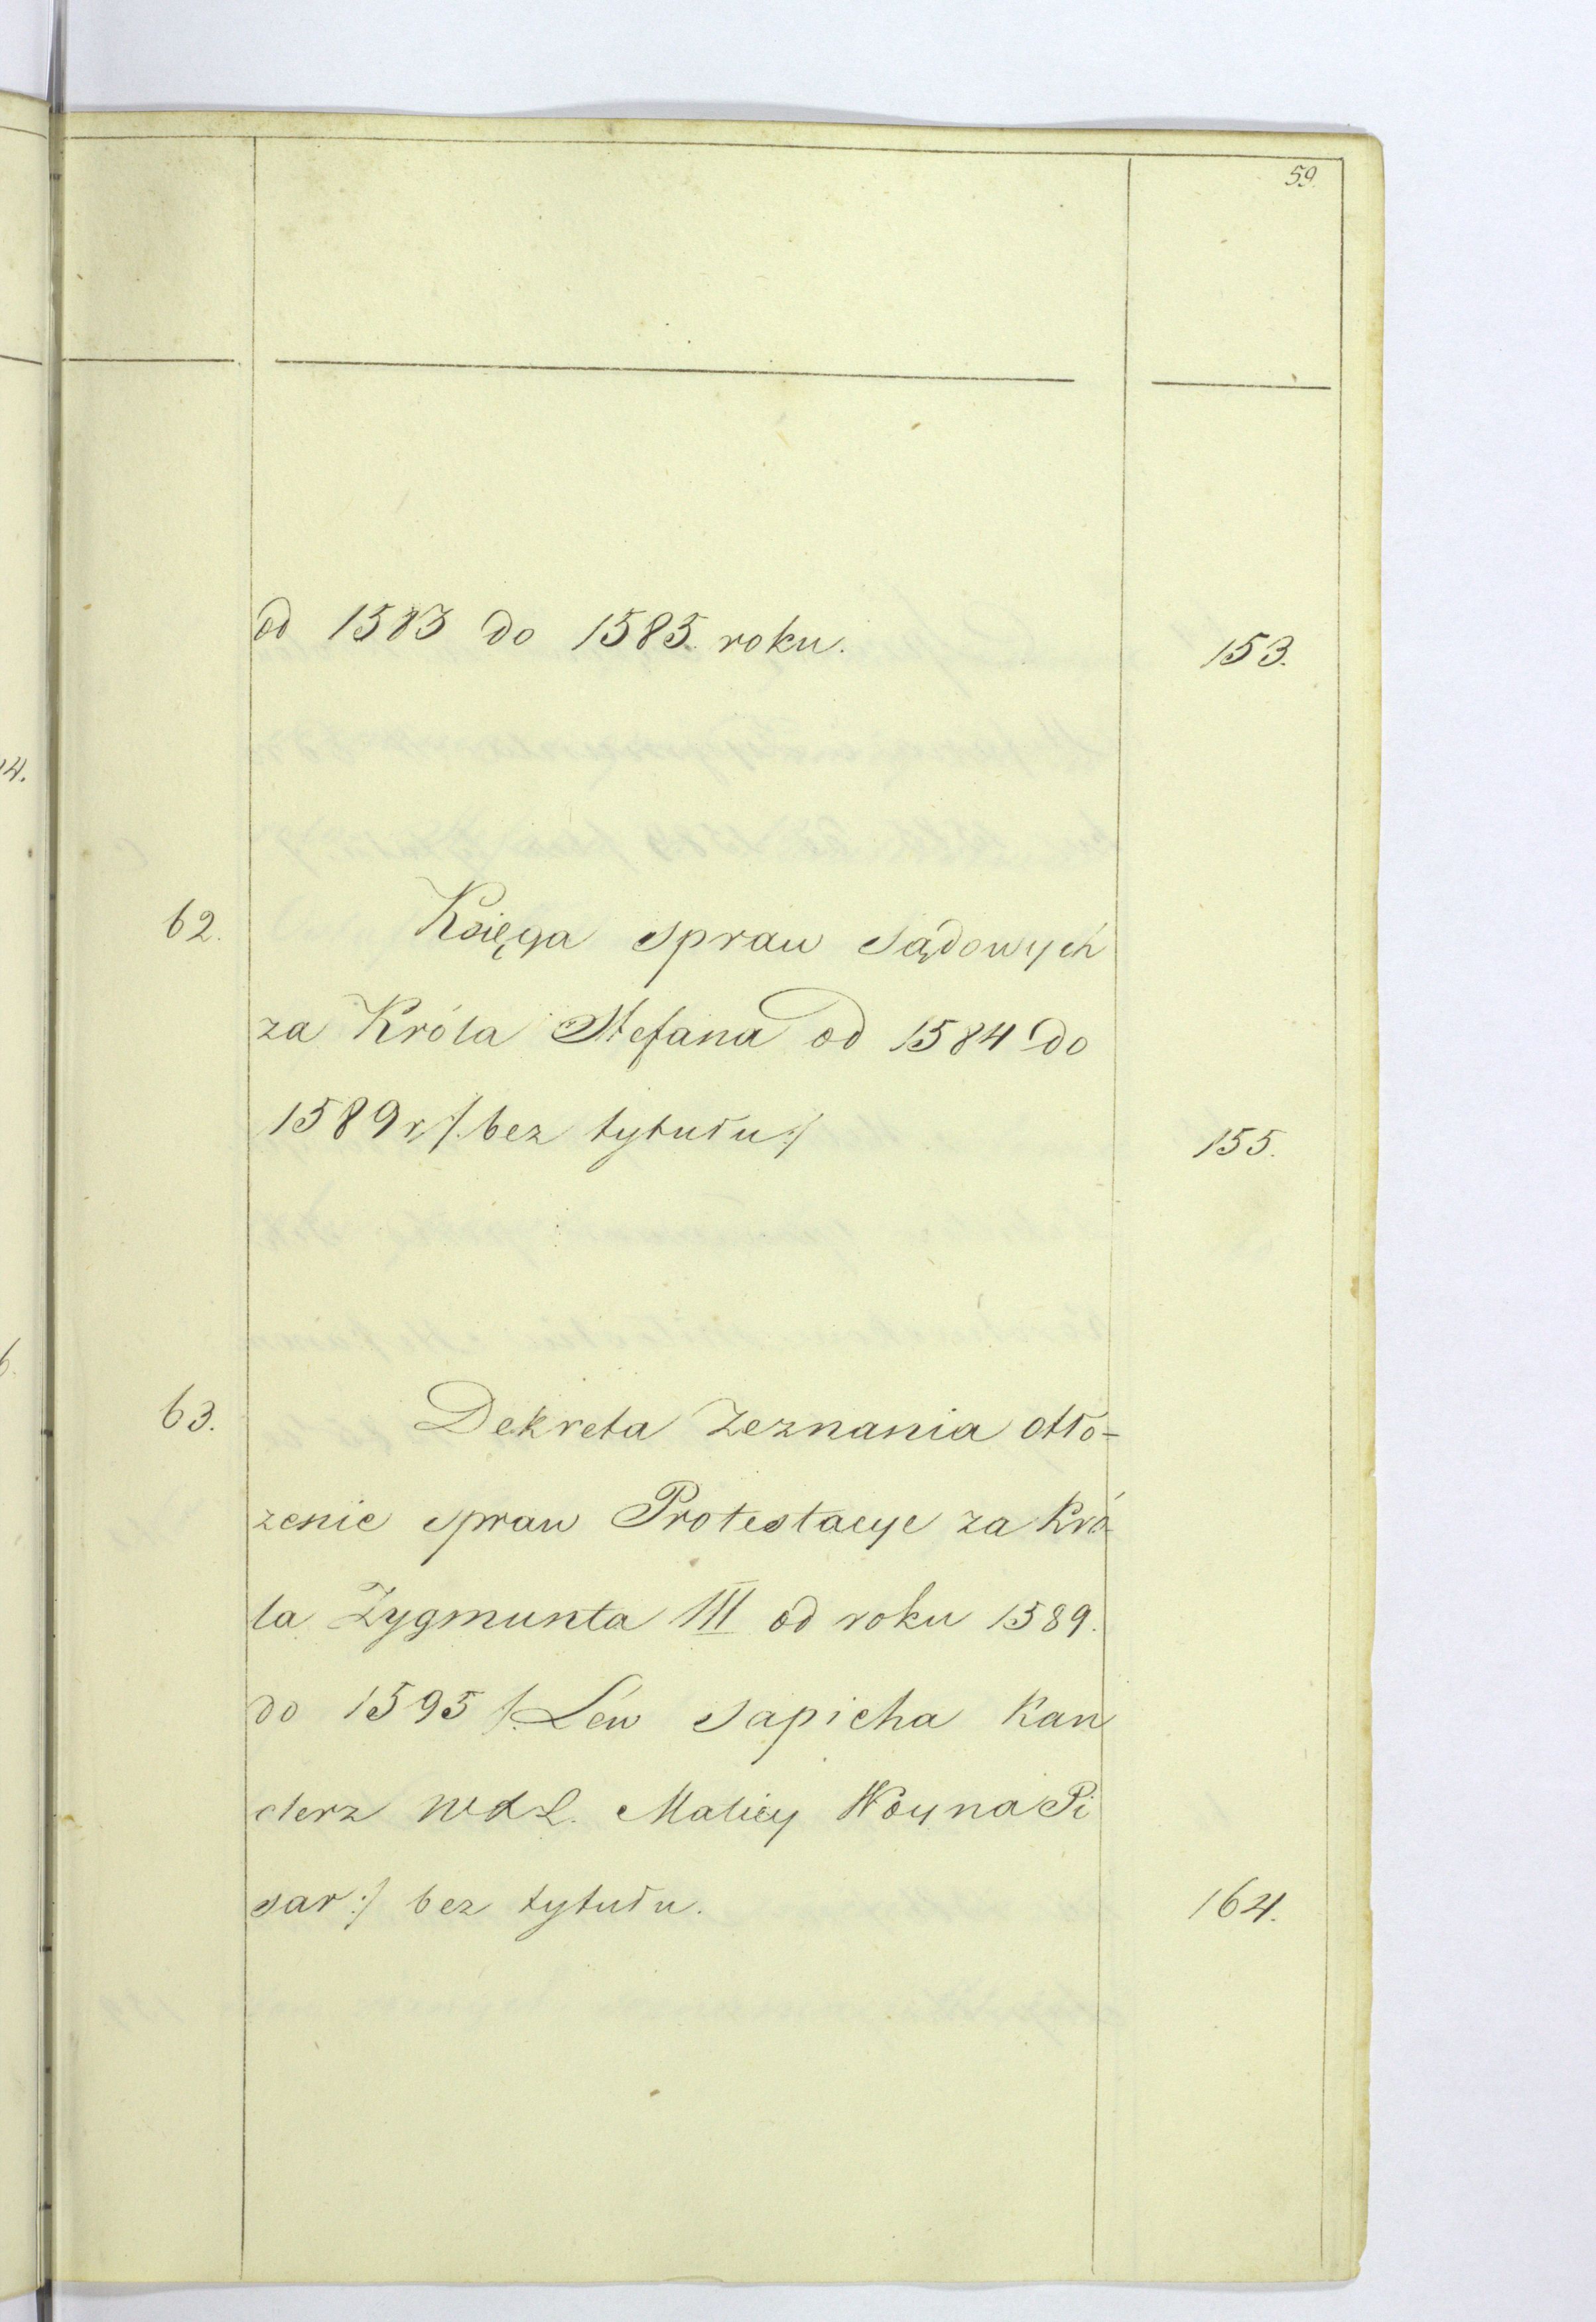 59.
od 1583 do 1585. roku. 153.
62. Księga spraw sądowych
za Króla Stefana od 1584 do
1589 r, /. bez tytułu ./ 155.
63. Dekreta Zeznania otło-
zenie spraw Protestacye za Kró-
la Zygmunta III od roku 1589.
do 1595 /. Lew Sapieha Kan
clerz WXL. Matiey Woyna Pi
sar :/ bez tytułu. 164.